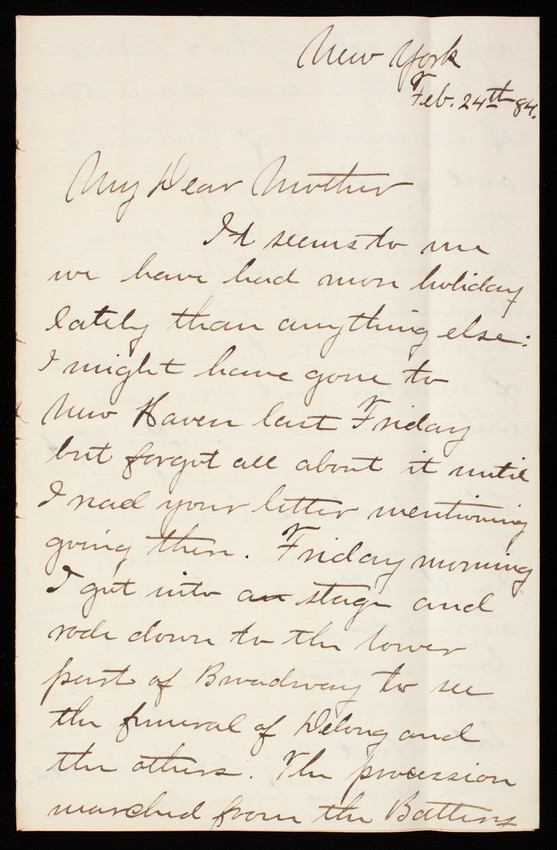 New York
Feb. 24th 84.
My Dear Mother
It seems to me
we have had more holiday
lately than anything else:
I might have gone to
New Haven last Friday
but forgot all about it until
I read your letter mentioning
going there. Friday morning
I got into a stage and
rode down to the lower
part of Broadway to see
the funeral of Delong and
the others. The procession
marched from the Battery